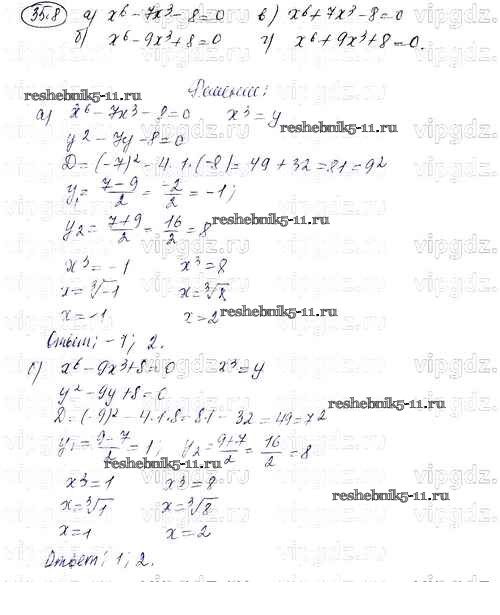 35.8 а) x⁶ - 7x³ - 8 = 0 в) x⁶ + 7x³ - 8 = 0
б) x⁶ - 9x³ + 8 = 0 г) x⁶ + 9x³ + 8 = 0.
Решение:
reshebnik5-11.ru
а) x⁶ - 7x³ - 8 = 0 x³ = y
y² - 7y - 8 = 0
D = (-7)² - 4·1·(-8) = 49 + 32 = 81 = 9²
y₁ = (7-9)/2 = -2/2 = -1;
y₂ = (7+9)/2 = 16/2 = 8
reshebnik5-11.ru
x³ = -1 x³ = 8
x = ∛-1 x = ∛8
x = -1 x = 2
reshebnik5-11.ru
Ответ: -1; 2.
б) x⁶ - 9x³ + 8 = 0 x³ = y
y² - 9y + 8 = 0
reshebnik5-11.ru
D = (-9)² - 4·1·8 = 81 - 32 = 49 = 7²
y₁ = (9-7)/2 = 1; y₂ = (9+7)/2 = 16/2 = 8
reshebnik5-11.ru
x³ = 1 x³ = 8
reshebnik5-11.ru
x = ∛1 x = ∛8
x = 1 x = 2
Ответ: 1; 2.
vipgdz